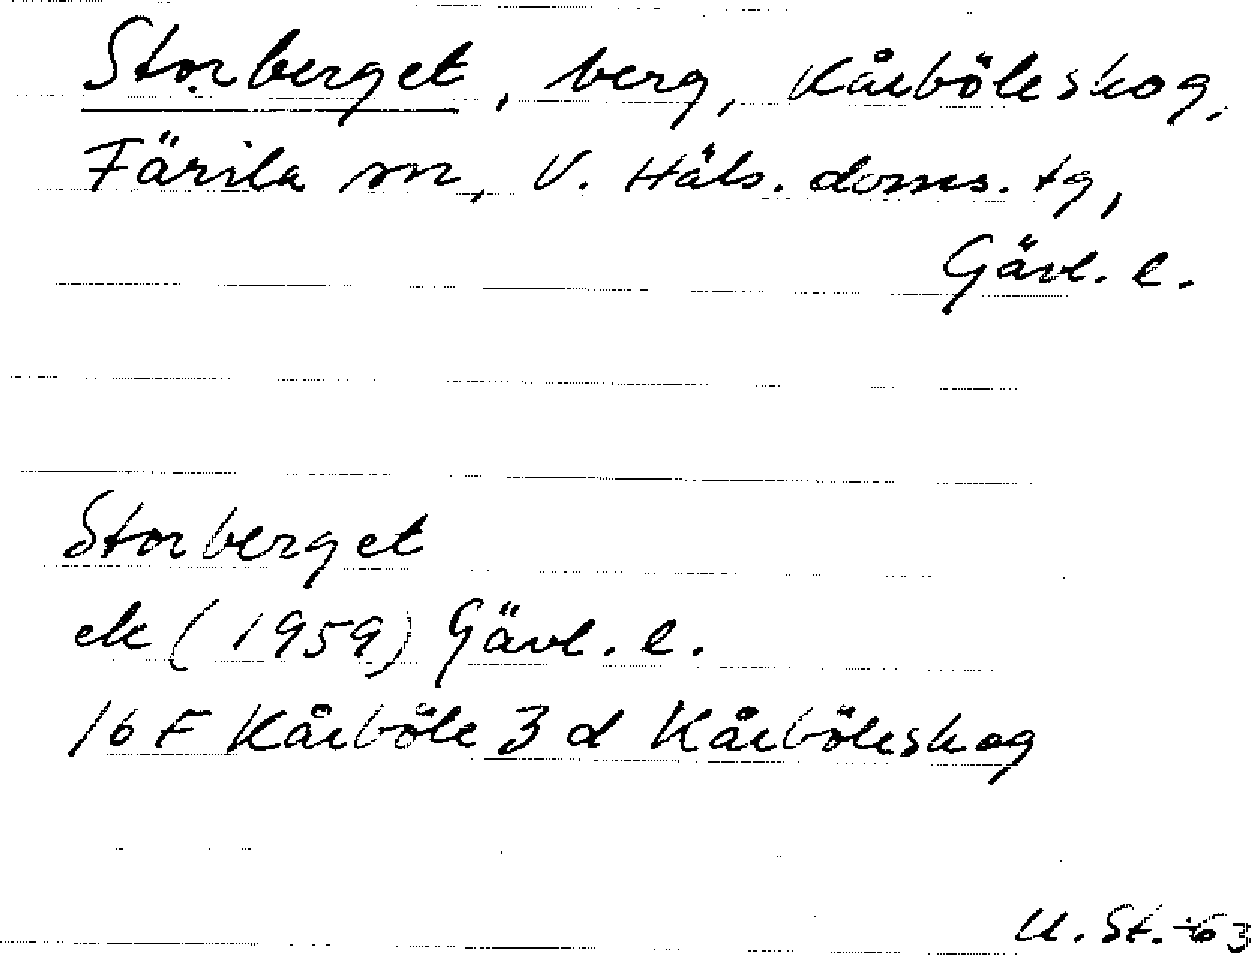 Storberget, berg, Kårböleskog,
Färila sn, V. Häls. doms. tg,
Gävl. l.
Storberget
ek (1959) Gävl. l.
16 F Kårböle 3 d Kårböleskog
U. St. -63